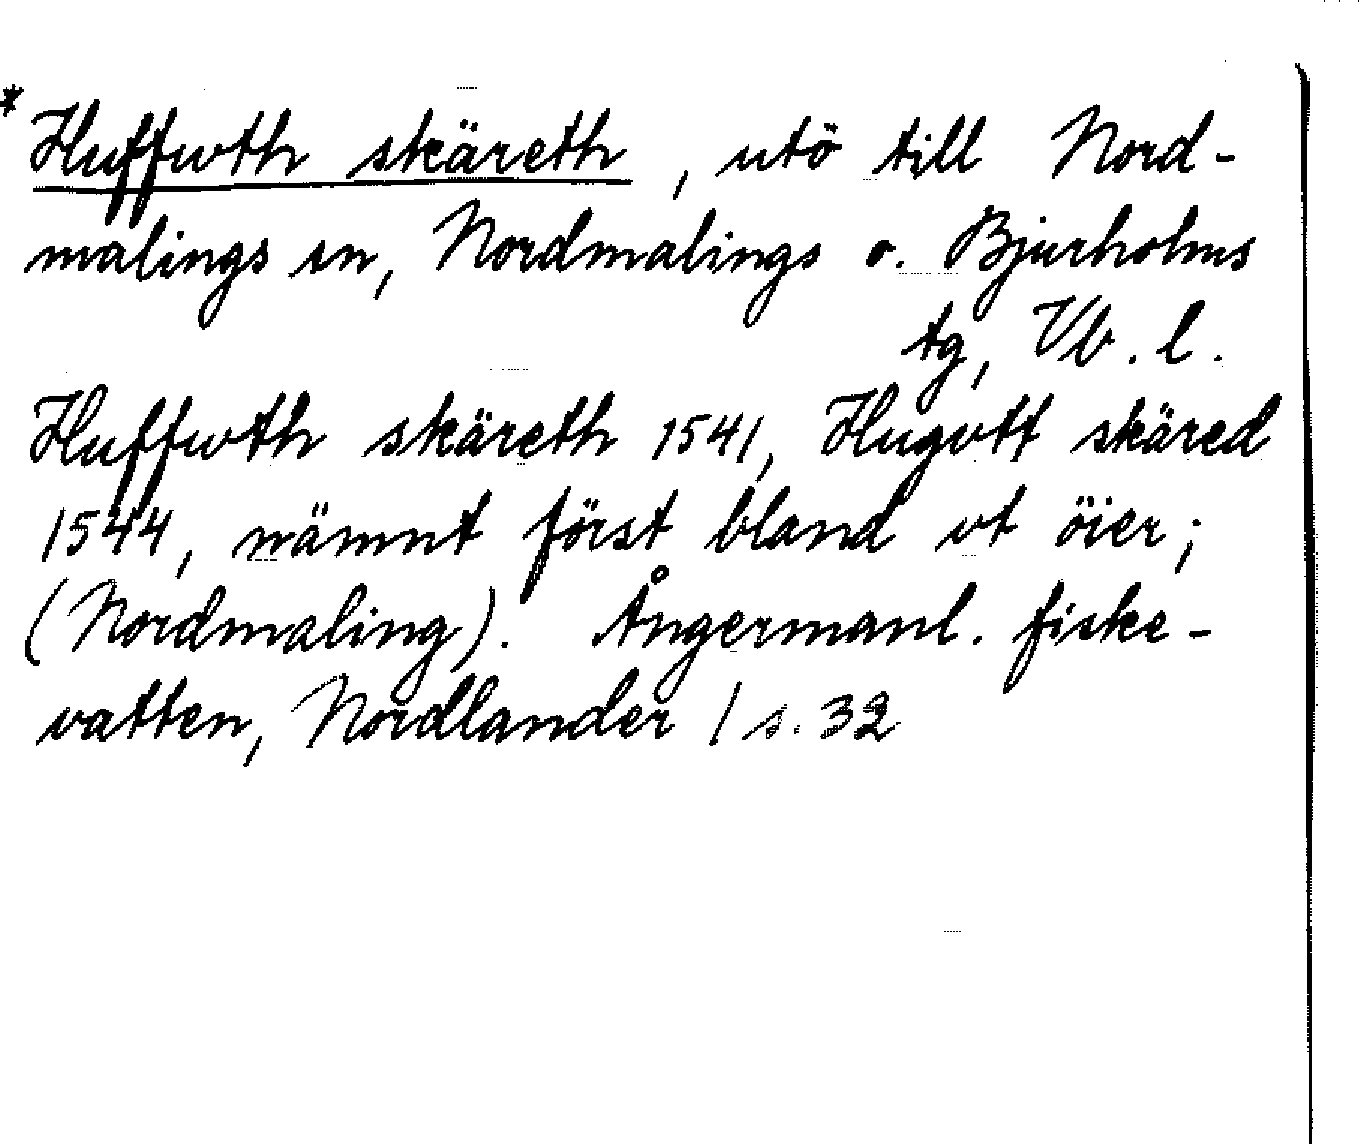 * Huffwth skäreth, utö till Nord-
malings sn, Nordmalings o. Bjurholms
tg, Vb. l.
Huffwth skäreth 1541, Hugvtt skäred
1544, nämnt först bland vt öier;
(Nordmaling). Ångermanl. fiske-
vatten, Nordlander / s. 32